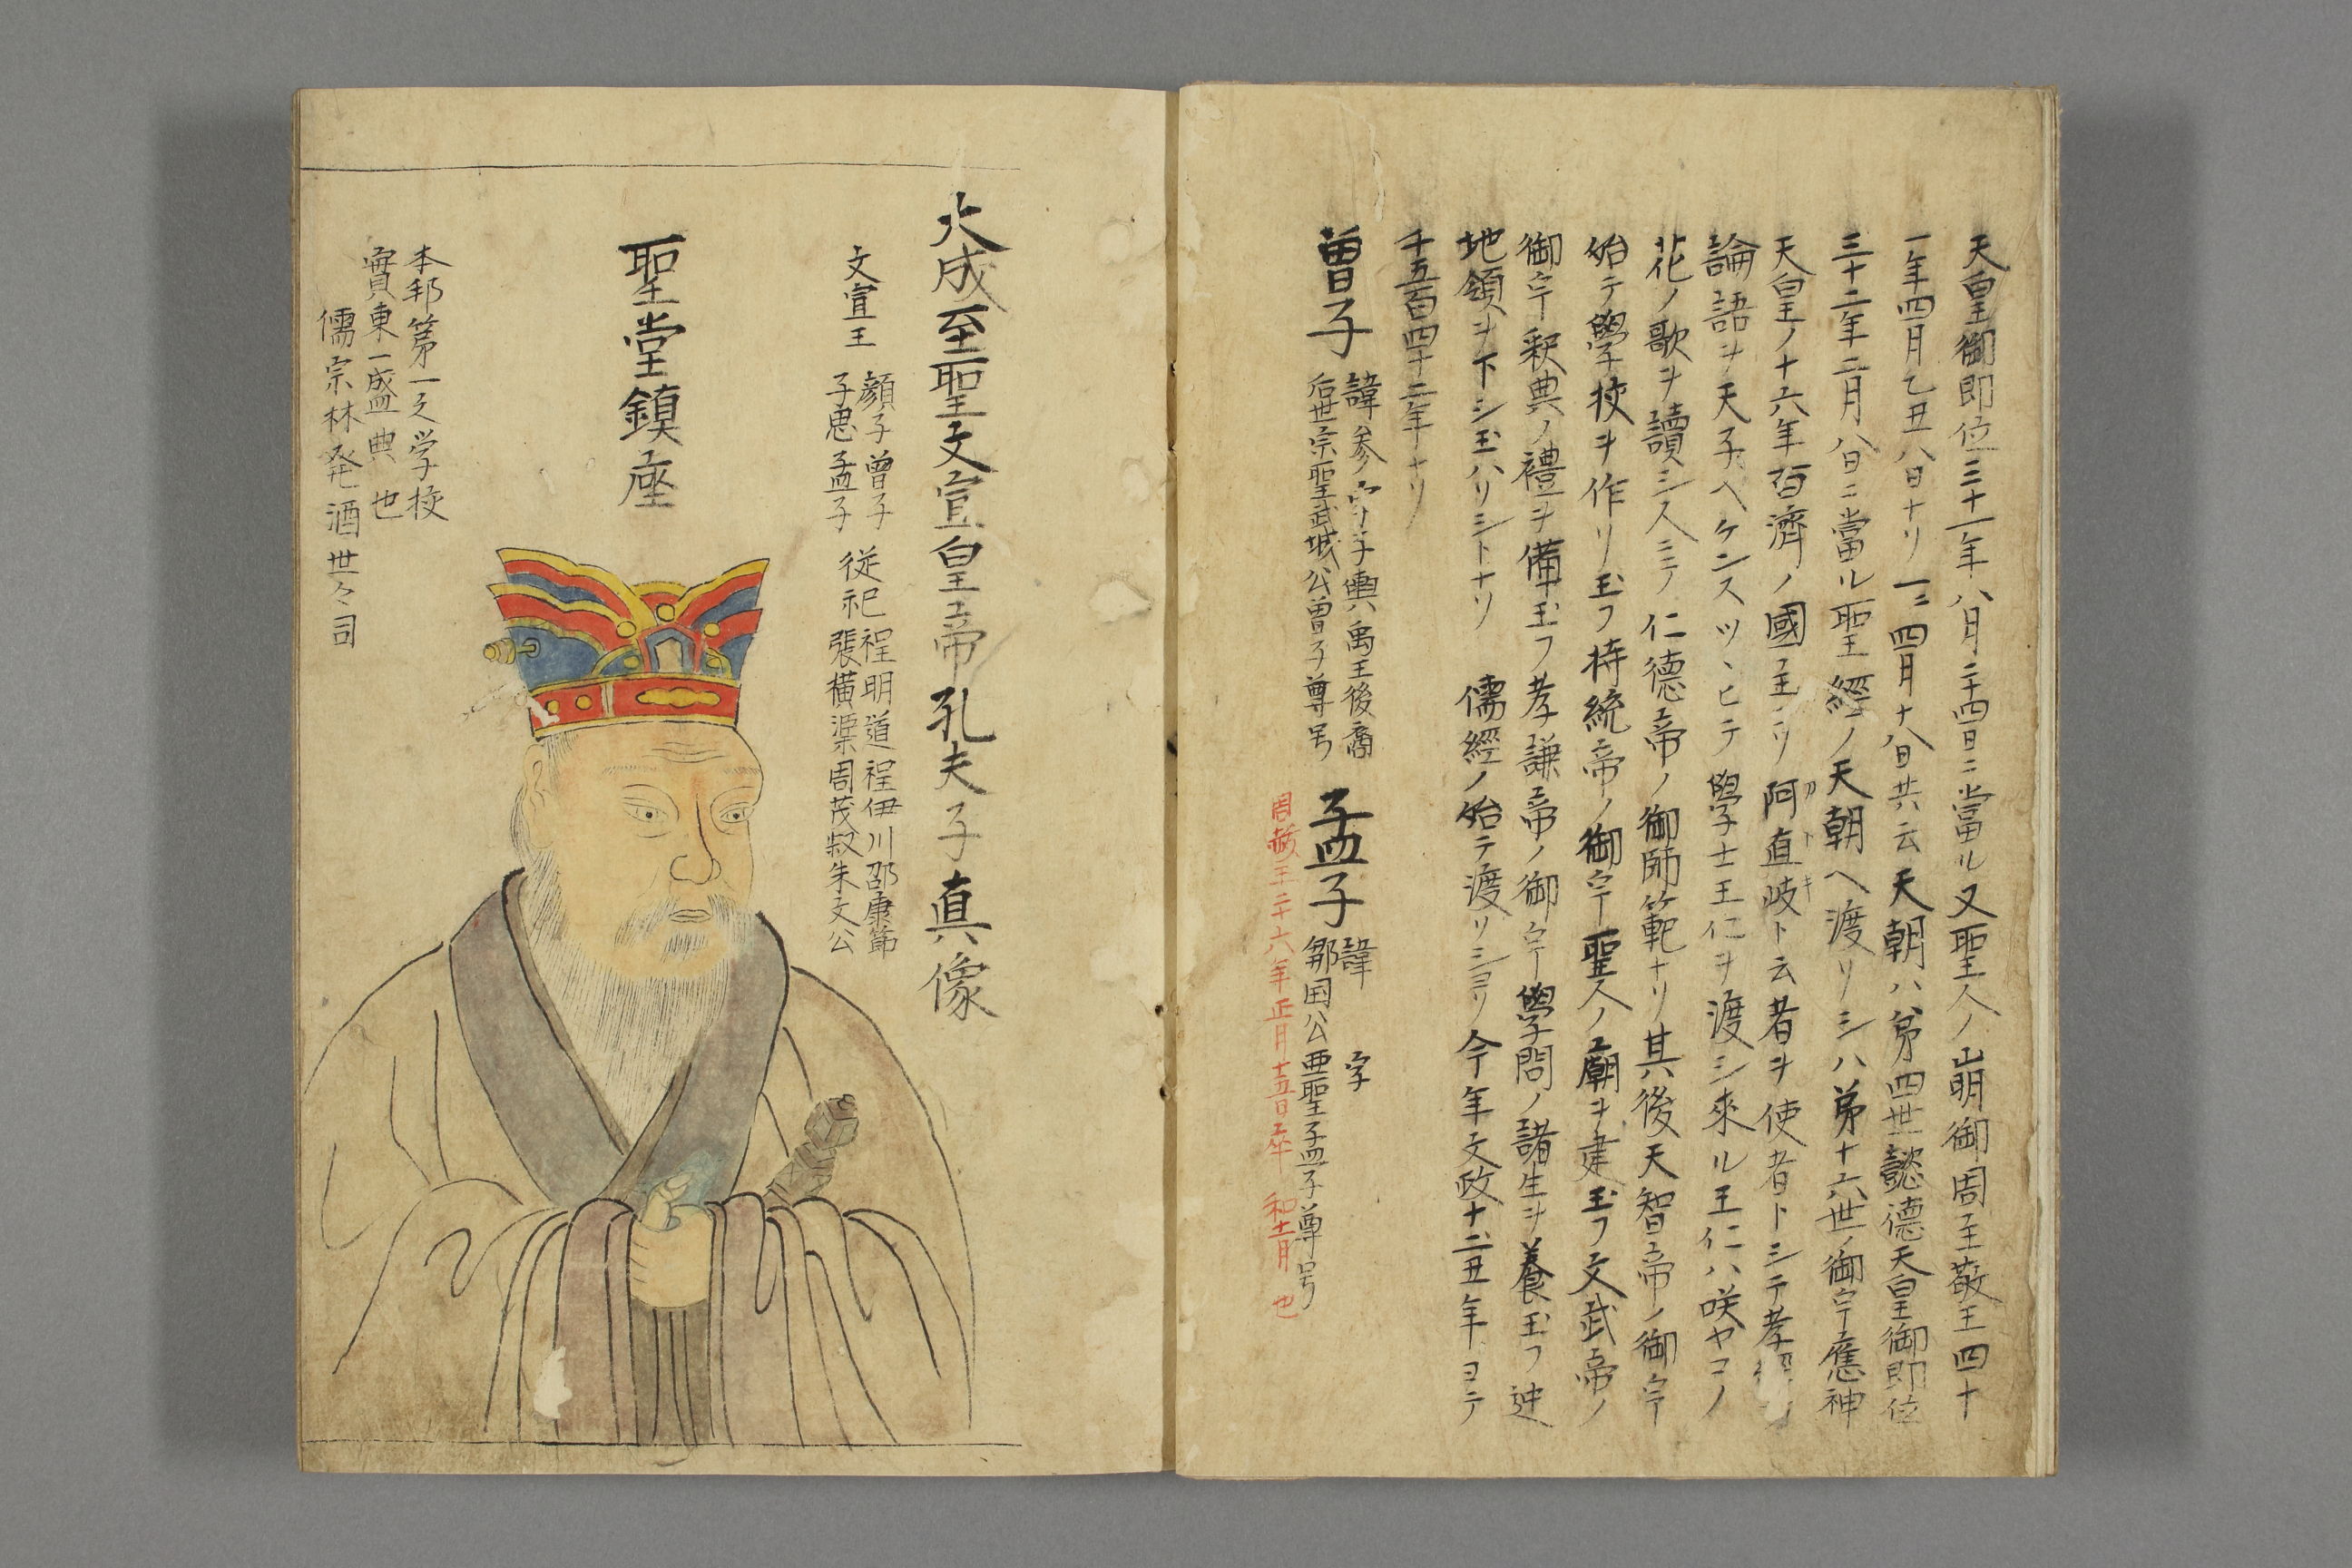 天皇御即位三十一年八月二十四日ニ當ル又聖人ノ崩御周ノ敬王四十
一年四月乙丑八日ナリ一ニ四月十八日共云天朝ハ第四世懿德天皇御即位
三十二年二月八日ニ當ル聖經ノ天朝ヘ渡リシハ第十六世ノ御宇應神
天皇ノ十六年百濟ノ國王ヨリ阿直岐ト云者ヲ使者トシテ孝經
アトキ
論語ヲ天子ヘケンスツヽヒテ學士王仁ヲ渡シ來ル王仁ハ咲ヤコノ
花ノ歌ヲ讀シ人ニテ仁德帝ノ御師範ナリ其後天智帝ノ御宇
始テ學校ヲ作リ玉フ持統帝ノ御宇聖人ノ廟ヲ建玉フ文武帝ノ
御宇釈典ノ禮ヲ備玉フ孝謙帝ノ御宇學問ノ諸生ヲ養玉フ
地領ヲ下シ玉ハリシトナリ 儒經ノ始テ渡リシヨリ今年文政十二丑年ヨテ
千五百四十二年ナリ
曽子
諱参字子輿禹王後裔
后世宗聖武城公曽子尊号
孟子
諱 字
鄒国公亜聖孟子尊号
周赧王二十六年正月十五日卒 和十一月也
大成至聖文宣皇帝孔夫子真像
文宣王
顔子曽子
子思孟子
従祀
程明道程伊川邵康節
張横渠周茂叔朱文公
聖堂鎮座
本邦第一之学校
實東一盛典也
儒宗林祭酒世々司